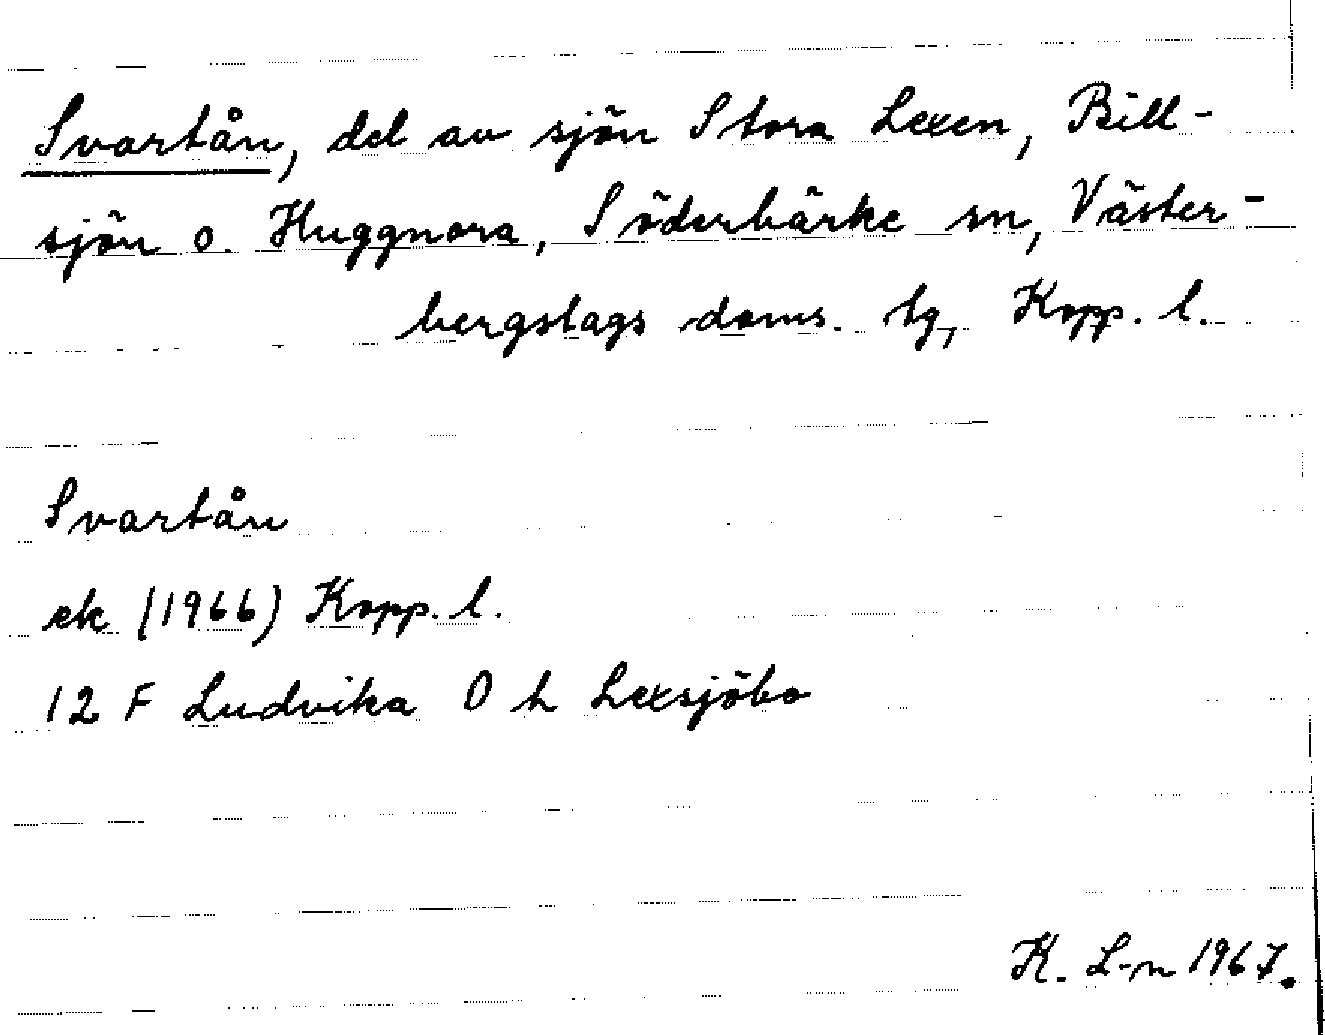 Svartån, del av sjön Stora Lexen, Bill-
sjön o. Huggnora, Söderbärke sn, Väster-
bergslags doms. tg, Kopp. l.
Svartån
ek (1966) Kopp. l.
12 F Ludvika O h Lexsjöbo
K. L-n 1967.